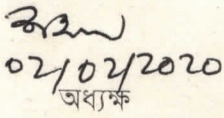 02/02/2020
অধ্যক্ষ